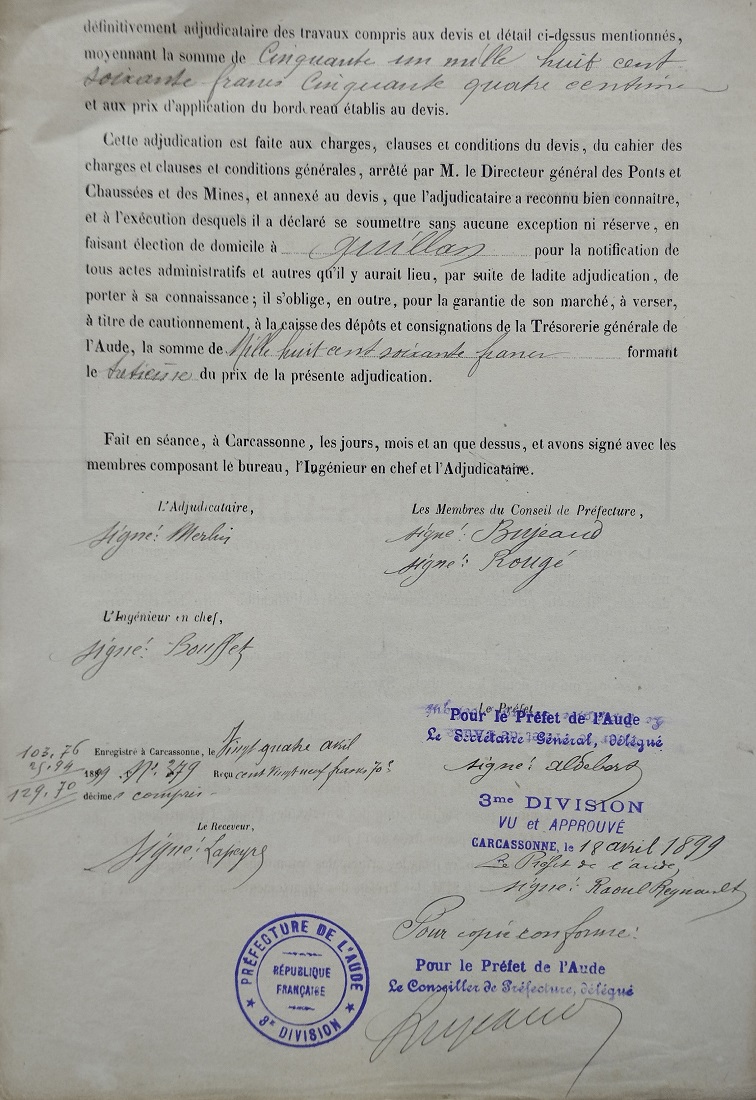 définitivement adjudicataire des travaux compris aux devis et détail ci-dessus mentionnés,
moyennant la somme de Cinquante un mille huit cent
soixante francs Cinquante quatre centimes
et aux prix d'application du bordereau établis au devis.
Cette adjudication est faite aux charges, clauses et conditions du devis, du cahier des
charges et clauses et conditions générales, arrêté par M. le Directeur général des Ponts et
Chaussées et des Mines, et annexé au devis, que l'adjudicataire a reconnu bien connaître,
et à l'exécution desquels il a déclaré se soumettre sans aucune exception ni réserve, en
faisant élection de domicile à Quillan pour la notification de
tous actes administratifs et autres qu'il y aurait lieu, par suite de ladite adjudication, de
porter à sa connaissance ; il s'oblige, en outre, pour la garantie de son marché, à verser,
à titre de cautionnement, à la caisse des dépôts et consignations de la Trésorerie générale de
l'Aude, la somme de Mille huit cent soixante francs formant
le trentième du prix de la présente adjudication.
Fait en séance, à Carcassonne, les jours, mois et an que dessus, et avons signé avec les
membres composant le bureau, l'Ingénieur en chef et l'Adjudicataire.
L'Adjudicataire,
signé: Merlin
Les Membres du Conseil de Préfecture,
signé: Bujeaud
signé: Rougé
L'Ingénieur en chef,
signé: Bouffet
Le Préfet
Pour le Préfet de l'Aude
Le Secrétaire Général, délégué
signé: Aldebert
3me DIVISION
VU et APPROUVÉ
CARCASSONNE, le 18 avril 1899
Le Préfet de l'aude,
signé: Raoul Regnault
103,76
25,94
129,70
Enregistré à Carcassonne, le Vingt quatre avril
1899 N° 379 Reçu cent vingt neuf francs 70c
décimes compris
Le Receveur,
signé: Lapeyre
Pour copie conforme:
Pour le Préfet de l'Aude
Le Conseiller de Préfecture, délégué
Bujeaud
PRÉFECTURE DE L'AUDE
RÉPUBLIQUE
FRANÇAISE
3e DIVISION